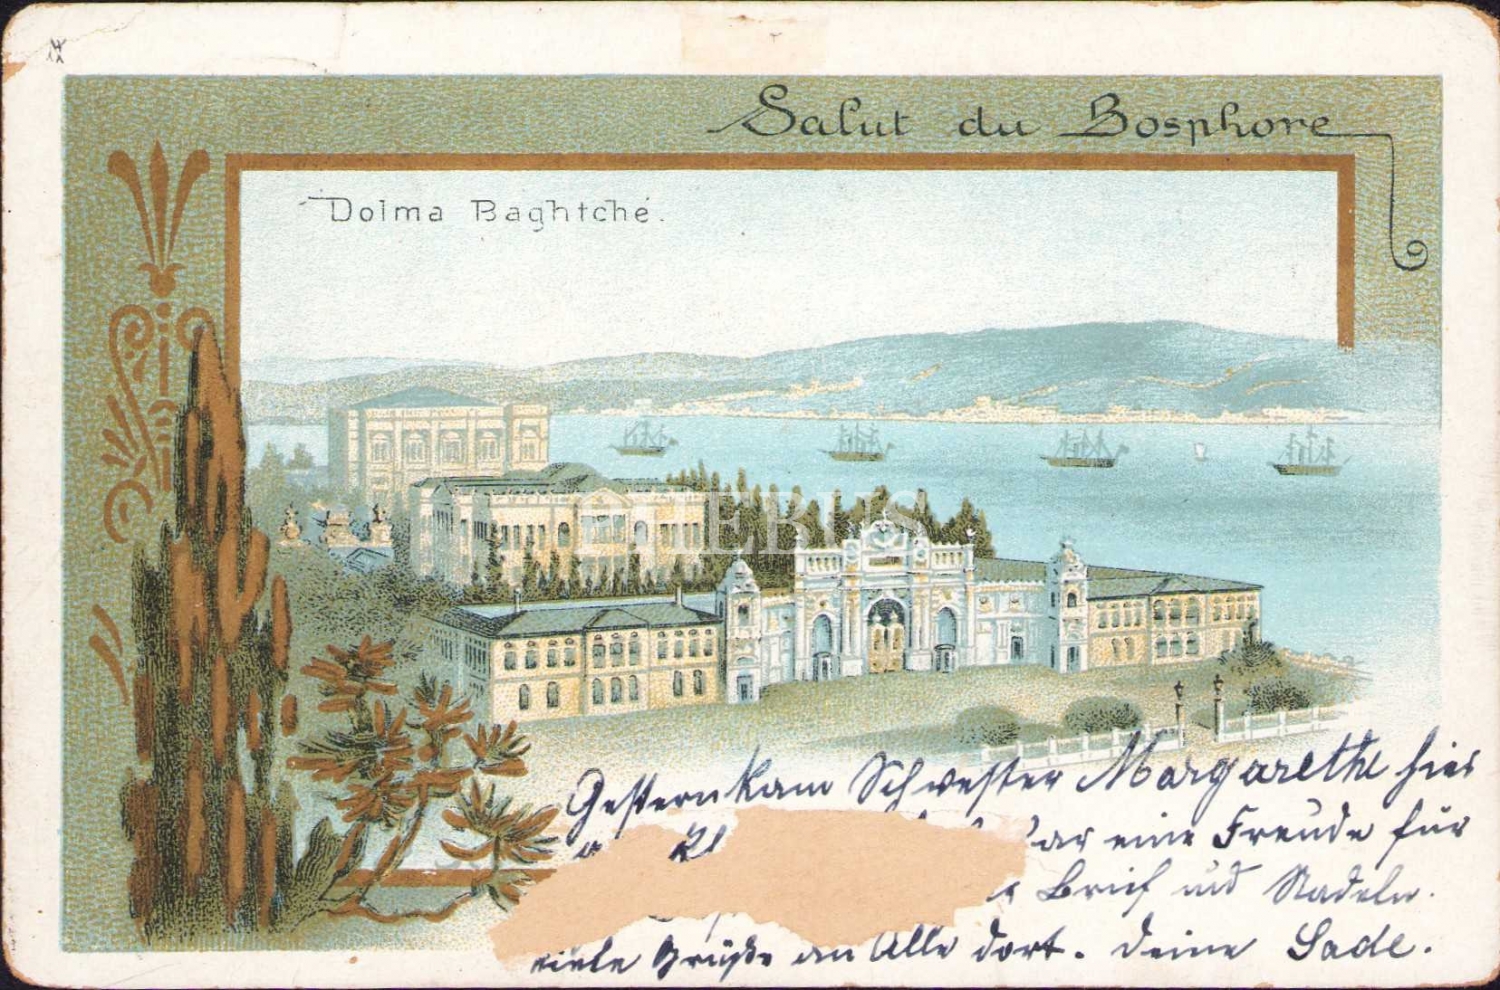 Salut du Bosphore
Dolma Baghtché.
PHEBUS
Gestern kam Schwester Margarethe hier
war eine Freude für
Brief und Nadeln.
viele Grüße an Alle dort. Deine Sade.